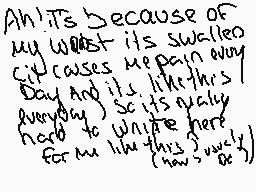 Ah! iTs because of
my wrist its swallen
cit causes me pain every
Day And its like this
everyday, so its realy
hard to write here
for me like this (how i usualy
Do)